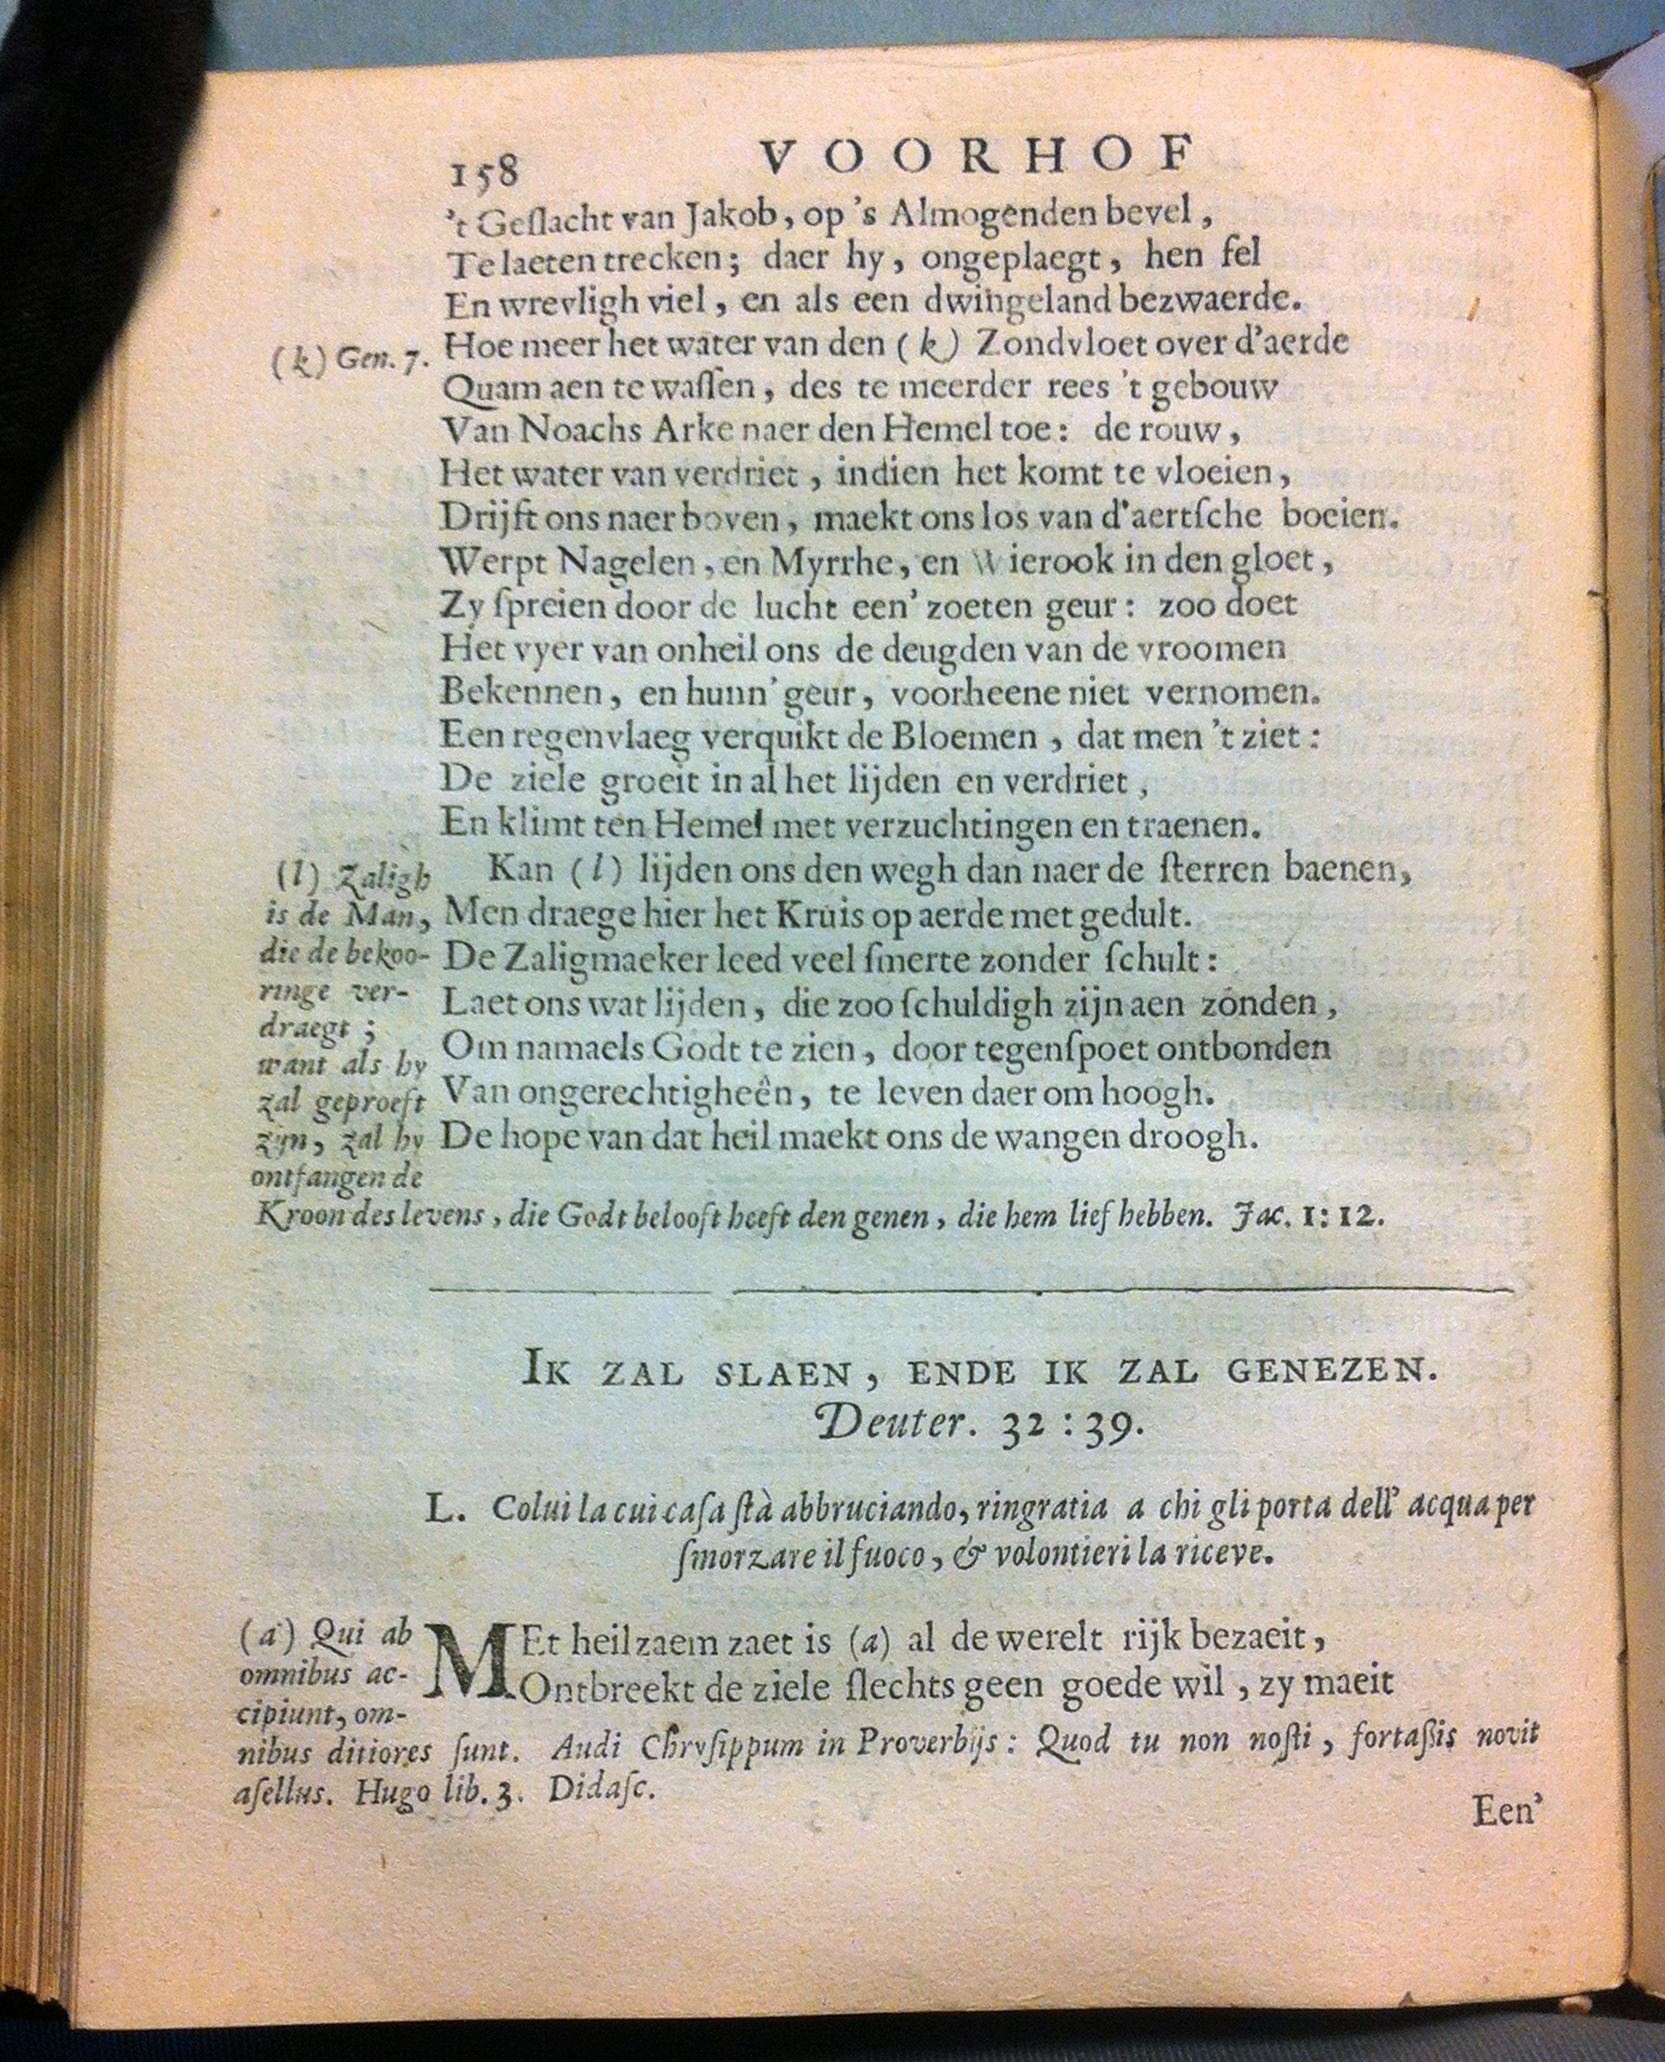 158 VOORHOF
't Geſlacht van Jakob, op 's Almogenden bevel,
Te laeten trecken; daer hy, ongeplaegt, hen fel
En wrevligh viel, en als een dwingeland bezwaerde.
(k) Gen. 7.
Hoe meer het water van den (k) Zondvloet over d'aerde
Quam aen te waſſen, des te meerder rees 't gebouw
Van Noachs Arke naer den Hemel toe: de rouw,
Het water van verdriet, indien het komt te vloeien,
Drijft ons naer boven, maekt ons los van d'aertſche boeien.
Werpt Nagelen, en Myrrhe, en Wierook in den gloet,
Zy ſpreien door de lucht een' zoeten geur: zoo doet
Het vyer van onheil ons de deugden van de vroomen
Bekennen, en hunn' geur, voorheene niet vernomen.
Een regenvlaeg verquikt de Bloemen, dat men 't ziet:
De ziele groeit in al het lijden en verdriet,
En klimt ten Hemel met verzuchtingen en traenen.
Kan (l) lijden ons den wegh dan naer de ſterren baenen,
Men draege hier het Kruis op aerde met gedult.
De Zaligmaeker leed veel ſmerte zonder ſchult:
Laet ons wat lijden, die zoo ſchuldigh zijn aen zonden,
Om namaels Godt te zien, door tegenſpoet ontbonden
Van ongerechtigheên, te leven daer om hoogh.
De hope van dat heil maekt ons de wangen droogh.
(l) Zaligh
is de Man,
die de bekoo-
ringe ver-
draegt;
want als hy
zal geproeft
zijn, zal hy
ontfangen de
Kroon des levens, die Godt belooft heeft den genen, die hem lief hebben. Jac. 1: 12.
IK ZAL SLAEN, ENDE IK ZAL GENEZEN.
Deuter. 32:39.
L. Colui la cui caſa ſtà abbruciando, ringratia a chi gli porta dell' acqua per
ſmorzare il fuoco, & volontieri la riceve.
MEt heilzaem zaet is (a) al de werelt rijk bezaeit,
Ontbreekt de ziele ſlechts geen goede wil, zy maeit
(a) Qui ab
omnibus ac-
cipiunt, om-
nibus ditiores ſunt. Audi Chryſippum in Proverbijs: Quod tu non noſti, fortaßis novit
aſellus. Hugo lib. 3. Didaſc.
Een'